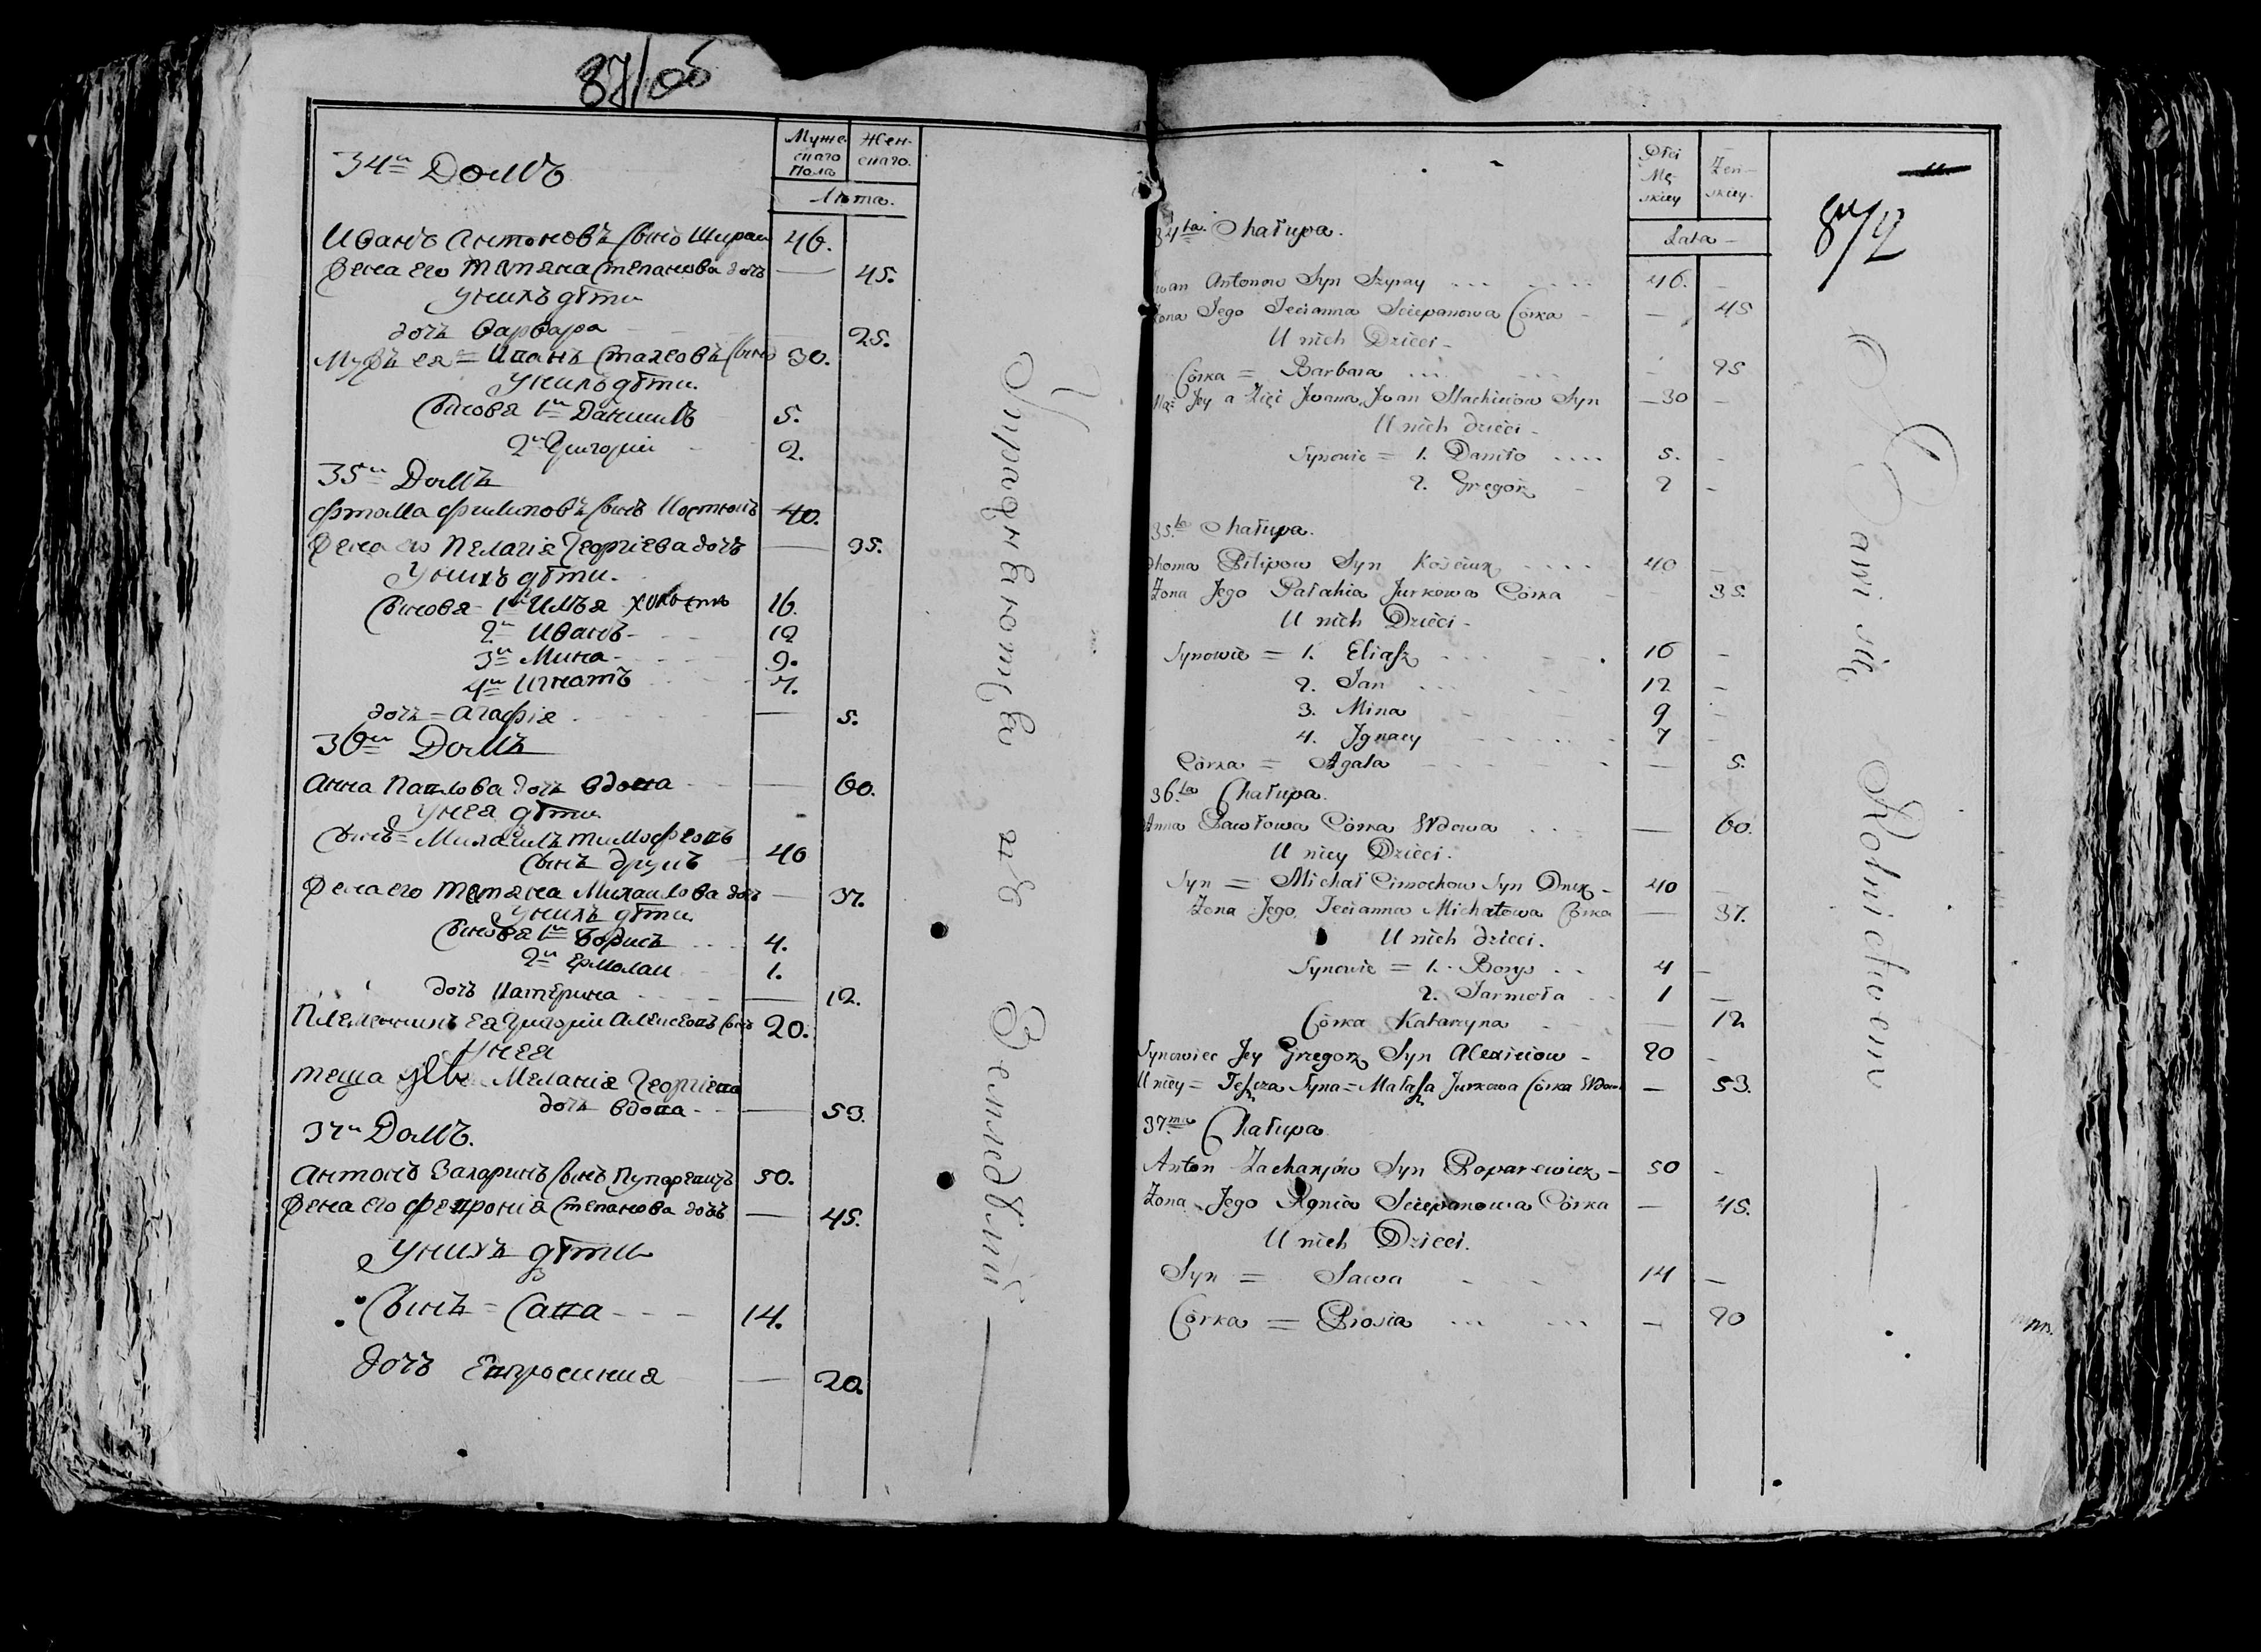 87/об
Мужескаго Пола
Женскаго.
Лѣта.
34й Домъ
Иванъ Антоновъ сынъ Шираи 46.
Жена его Татяна Степанова дочь — 45.
У нихъ дѣти
дочь Варвара 25.
Мужъ ея = Иванъ Стахеовъ сынъ 30.
У нихъ дѣти.
Сыновя 1й Данилъ 5.
2й Григорій 2.
35й Домъ
Фтома Филиповъ сынъ Костюкъ 40.
Жена его Пелагія Георгіева дочь — 35.
У нихъ дѣти.
Сыновя - 1й Илья 16.
2й Иванъ 12
3й Мина 9.
4й Игнатъ 7.
дочь = Агафія — 5.
36й Домъ
Анна Павлова дочь вдова — 60.
У нея дѣти
Сынъ = Михаилъ Тимофеовъ
сынъ 40
Жена его Татяна Михаилова дочь — 37.
У нихъ дѣти
Сыновя 1й Борисъ 4.
2й Ермолаи 1.
дочь Катерина — 12.
Племянникъ ея Григорій Алексеовъ сынъ 20.
У нея
теща Меланія Георгіева
дочь вдова — 53.
37й Домъ.
Антонъ Захаринъ сынъ 50.
Жена его Февронія Степанова дочь — 45.
У нихъ дѣти
Сынъ = Сава 14.
дочь Евпросиния — 20.
Упражняютца въ Земледѣліи —
Płci Męskiey
Żenskiey.
Lata
87
34ta Chałupa.
Iwan Antonow Syn Szyray 46.
Żona Jego Tecianna Sciepanowa Córka — 45
U nich Dzieci
Córka = Barbara 25
Mąż Jey a Zięć Jwana, Jwan Stachieiow Syn 30
U nich dzieci
Synowie = 1. Daniło 5.
2. Gregorz 2
35ta Chałupa.
Choma Pilipow Syn Kościuk 40
Żona Jego Pałahia Jurkowa Córka 35.
U nich Dzieci
Synowie = 1. Eliasz 16
2. Jan 12
3. Mina 9
4. Jgnacy 7
Córka = Agata — 5.
36ta Chałupa.
Anna Pawłowa Córka Wdowa — 60.
U niey Dzieci.
Syn = Michał Cimochow Syn 40
Żona Jego Tecianna Michałowa Córka — 37.
U nich dzieci.
Synowie = 1. Borys 4
2. Jarmoła 1
Córka Katarzyna — 12
Synowiec Jey Grzegorz Syn Alexieiow 20
U niey = Teszcza Syna = Małasza Jurkowa Córka Wdowa — 53.
37ma Chałupa
Anton Zacharjów Syn 50
Żona Jego Agnia Sciepanowa Córka — 45.
U nich Dzieci.
Syn = Sawa 14
Córka = Prosia — 20
Bawi się Rolnictwem —